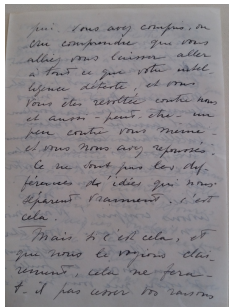 qui. Vous avez compris, ou
cru comprendre que vous
alliez vous laisser aller
à tout ce que votre intel-
ligence déteste, et vous
vous êtes révoltée contre nous
et aussi - peut-être - un
peu contre vous même -
et vous nous avez repoussés.
Ce ne sont pas les dif-
férences d'idées qui nous
séparent vraiment. c'est
cela.
Mais si c'est cela, et
que nous le voyions clai-
rement, cela ne fera
t-il pas cesser vos raisons